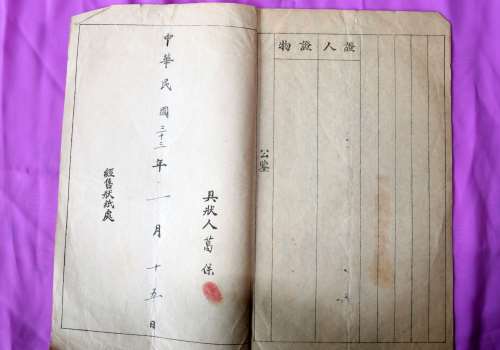 證人證物
公鑒
具狀人 葛保
中華民國三十三年一月十五日
經售狀紙處